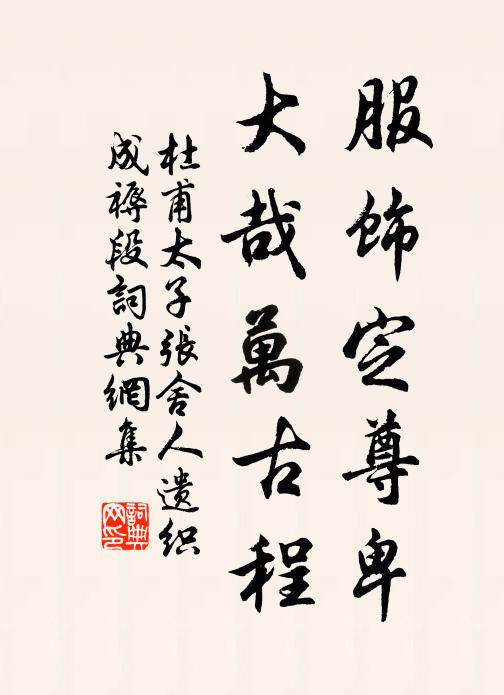 服飾定尊卑
大哉萬古程
杜甫太子張舍人遺織
成褥段詞典網集
詞典
网印